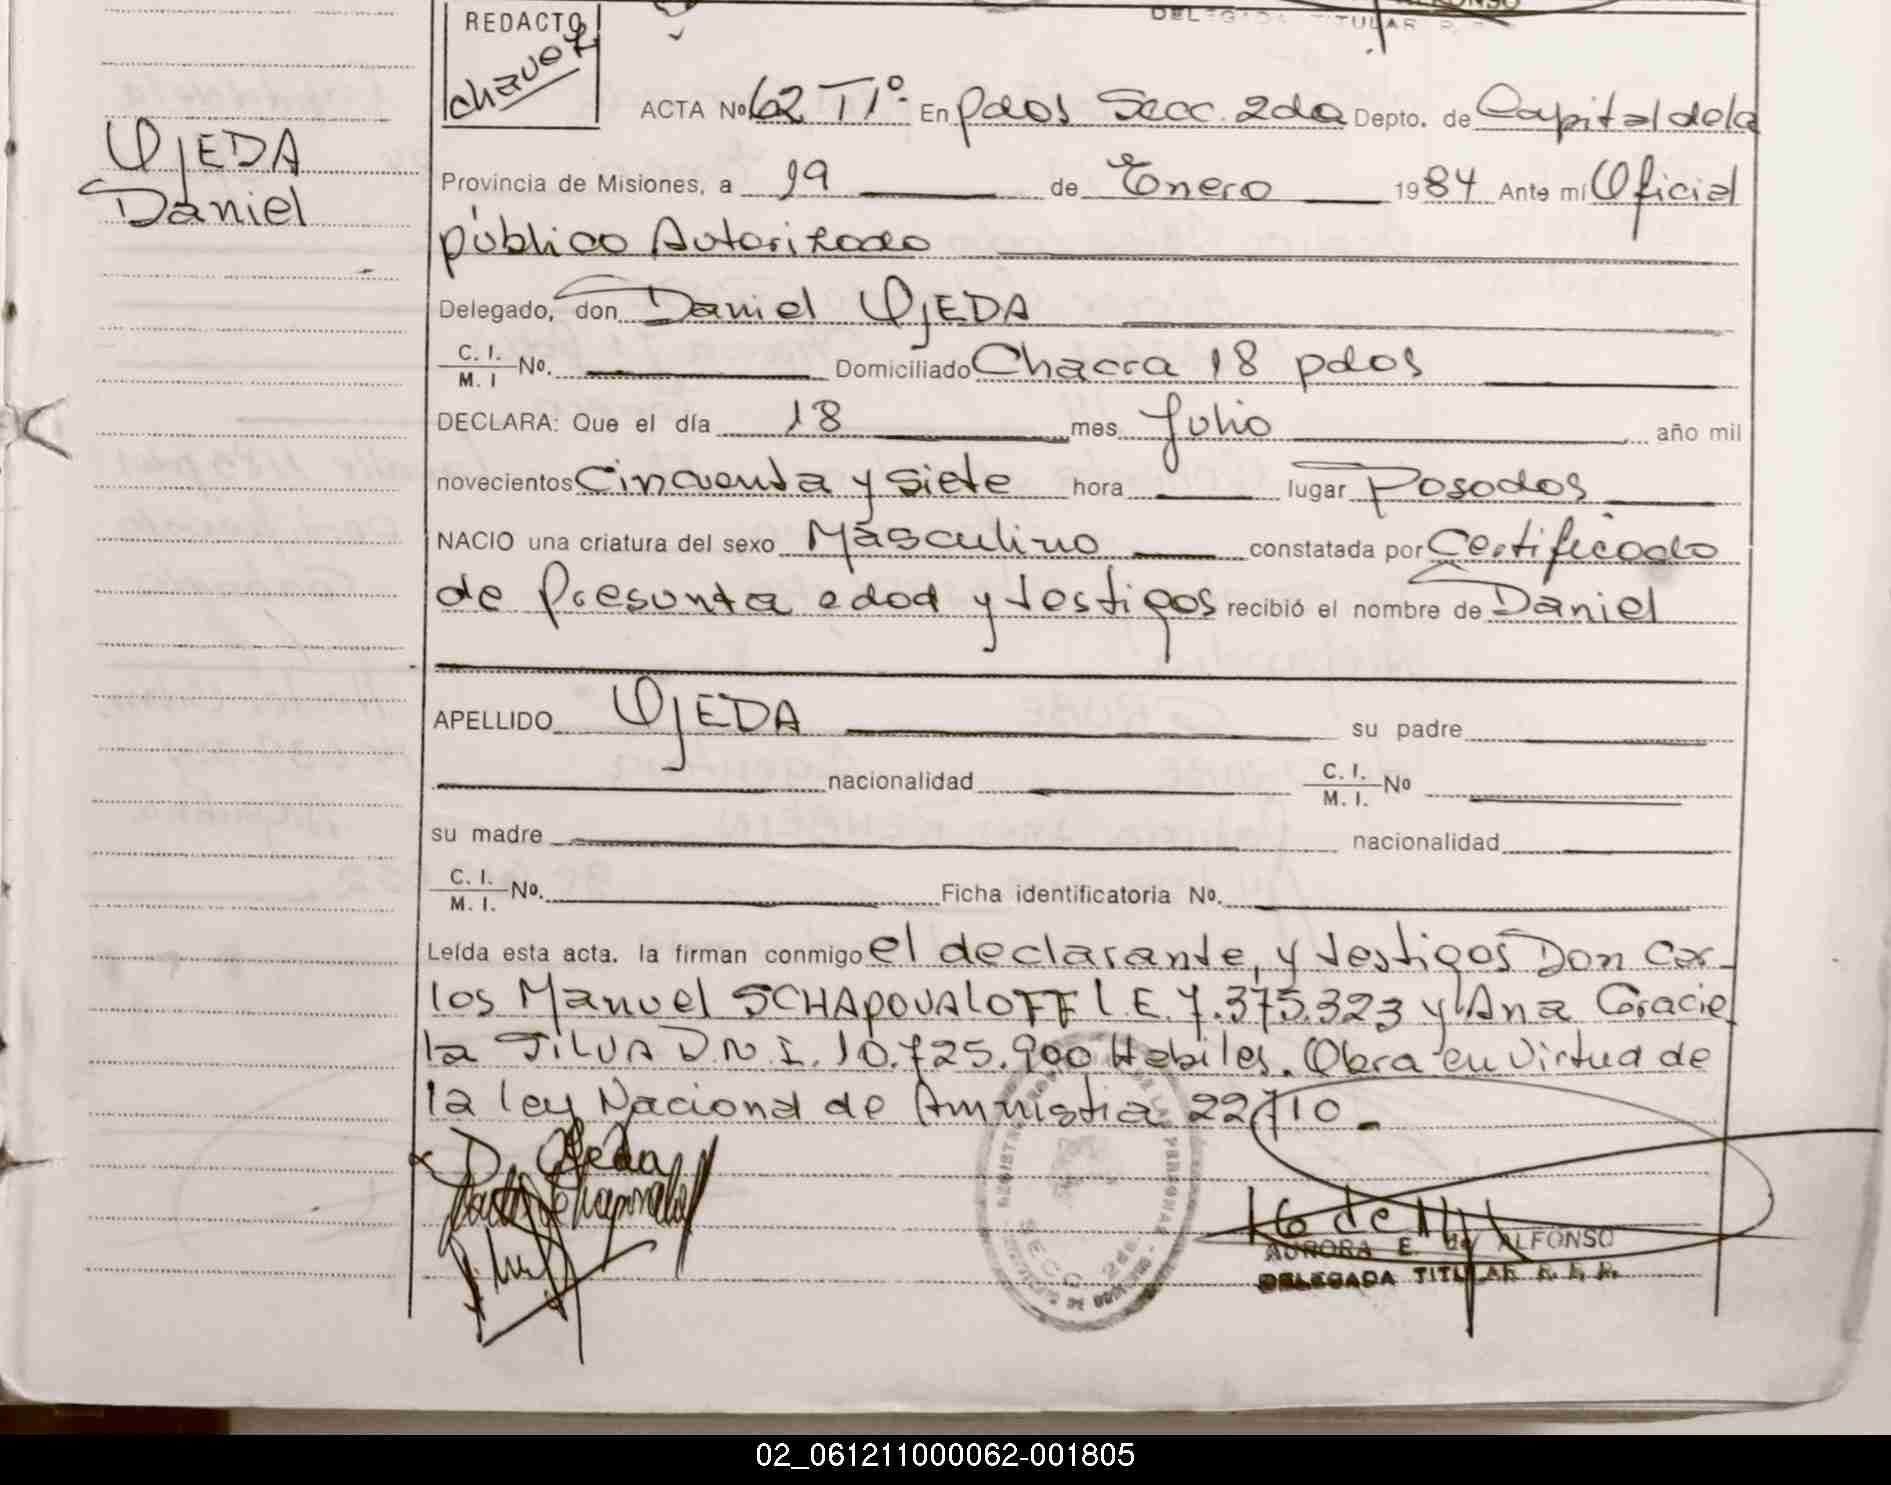 REDACTO
chavez
DELEGADA TITULAR R.
ACTA Nº 62 Tº 1º En Pdas Secc. 2da Depto. de Capital de la
OJEDA
Daniel
Provincia de Misiones, a 19 de Enero 1984 Ante mí Oficial
público Autorizado
Delegado, don Daniel OJEDA
C. I.
M. I No. Domiciliado Chacra 18 pdas
DECLARA: Que el día 18 mes Julio año mil
novecientos Cincuenta y siete hora lugar Posadas
NACIO una criatura del sexo Masculino constatada por Certificado
de Presunta edad y testigos recibió el nombre de Daniel
APELLIDO OJEDA su padre
nacionalidad C. I.
M. I. No
su madre nacionalidad
C. I.
M. I. No. Ficha identificatoria No.
Leída esta acta. la firman conmigo el declarante, y testigos Don Car-
los Manuel SCHAPOVALOFF L.E. 7.375.323 y Ana Gracie
la SILVA D.N.I. 10.725.900 Habiles. Obra en virtud de
la ley Nacional de Amnistia 22710.-
D. Ojeda
AURORA E. de ALFONSO
DELEGADA TITULAR R. P. P.
SECC 2da
02_061211000062-001805